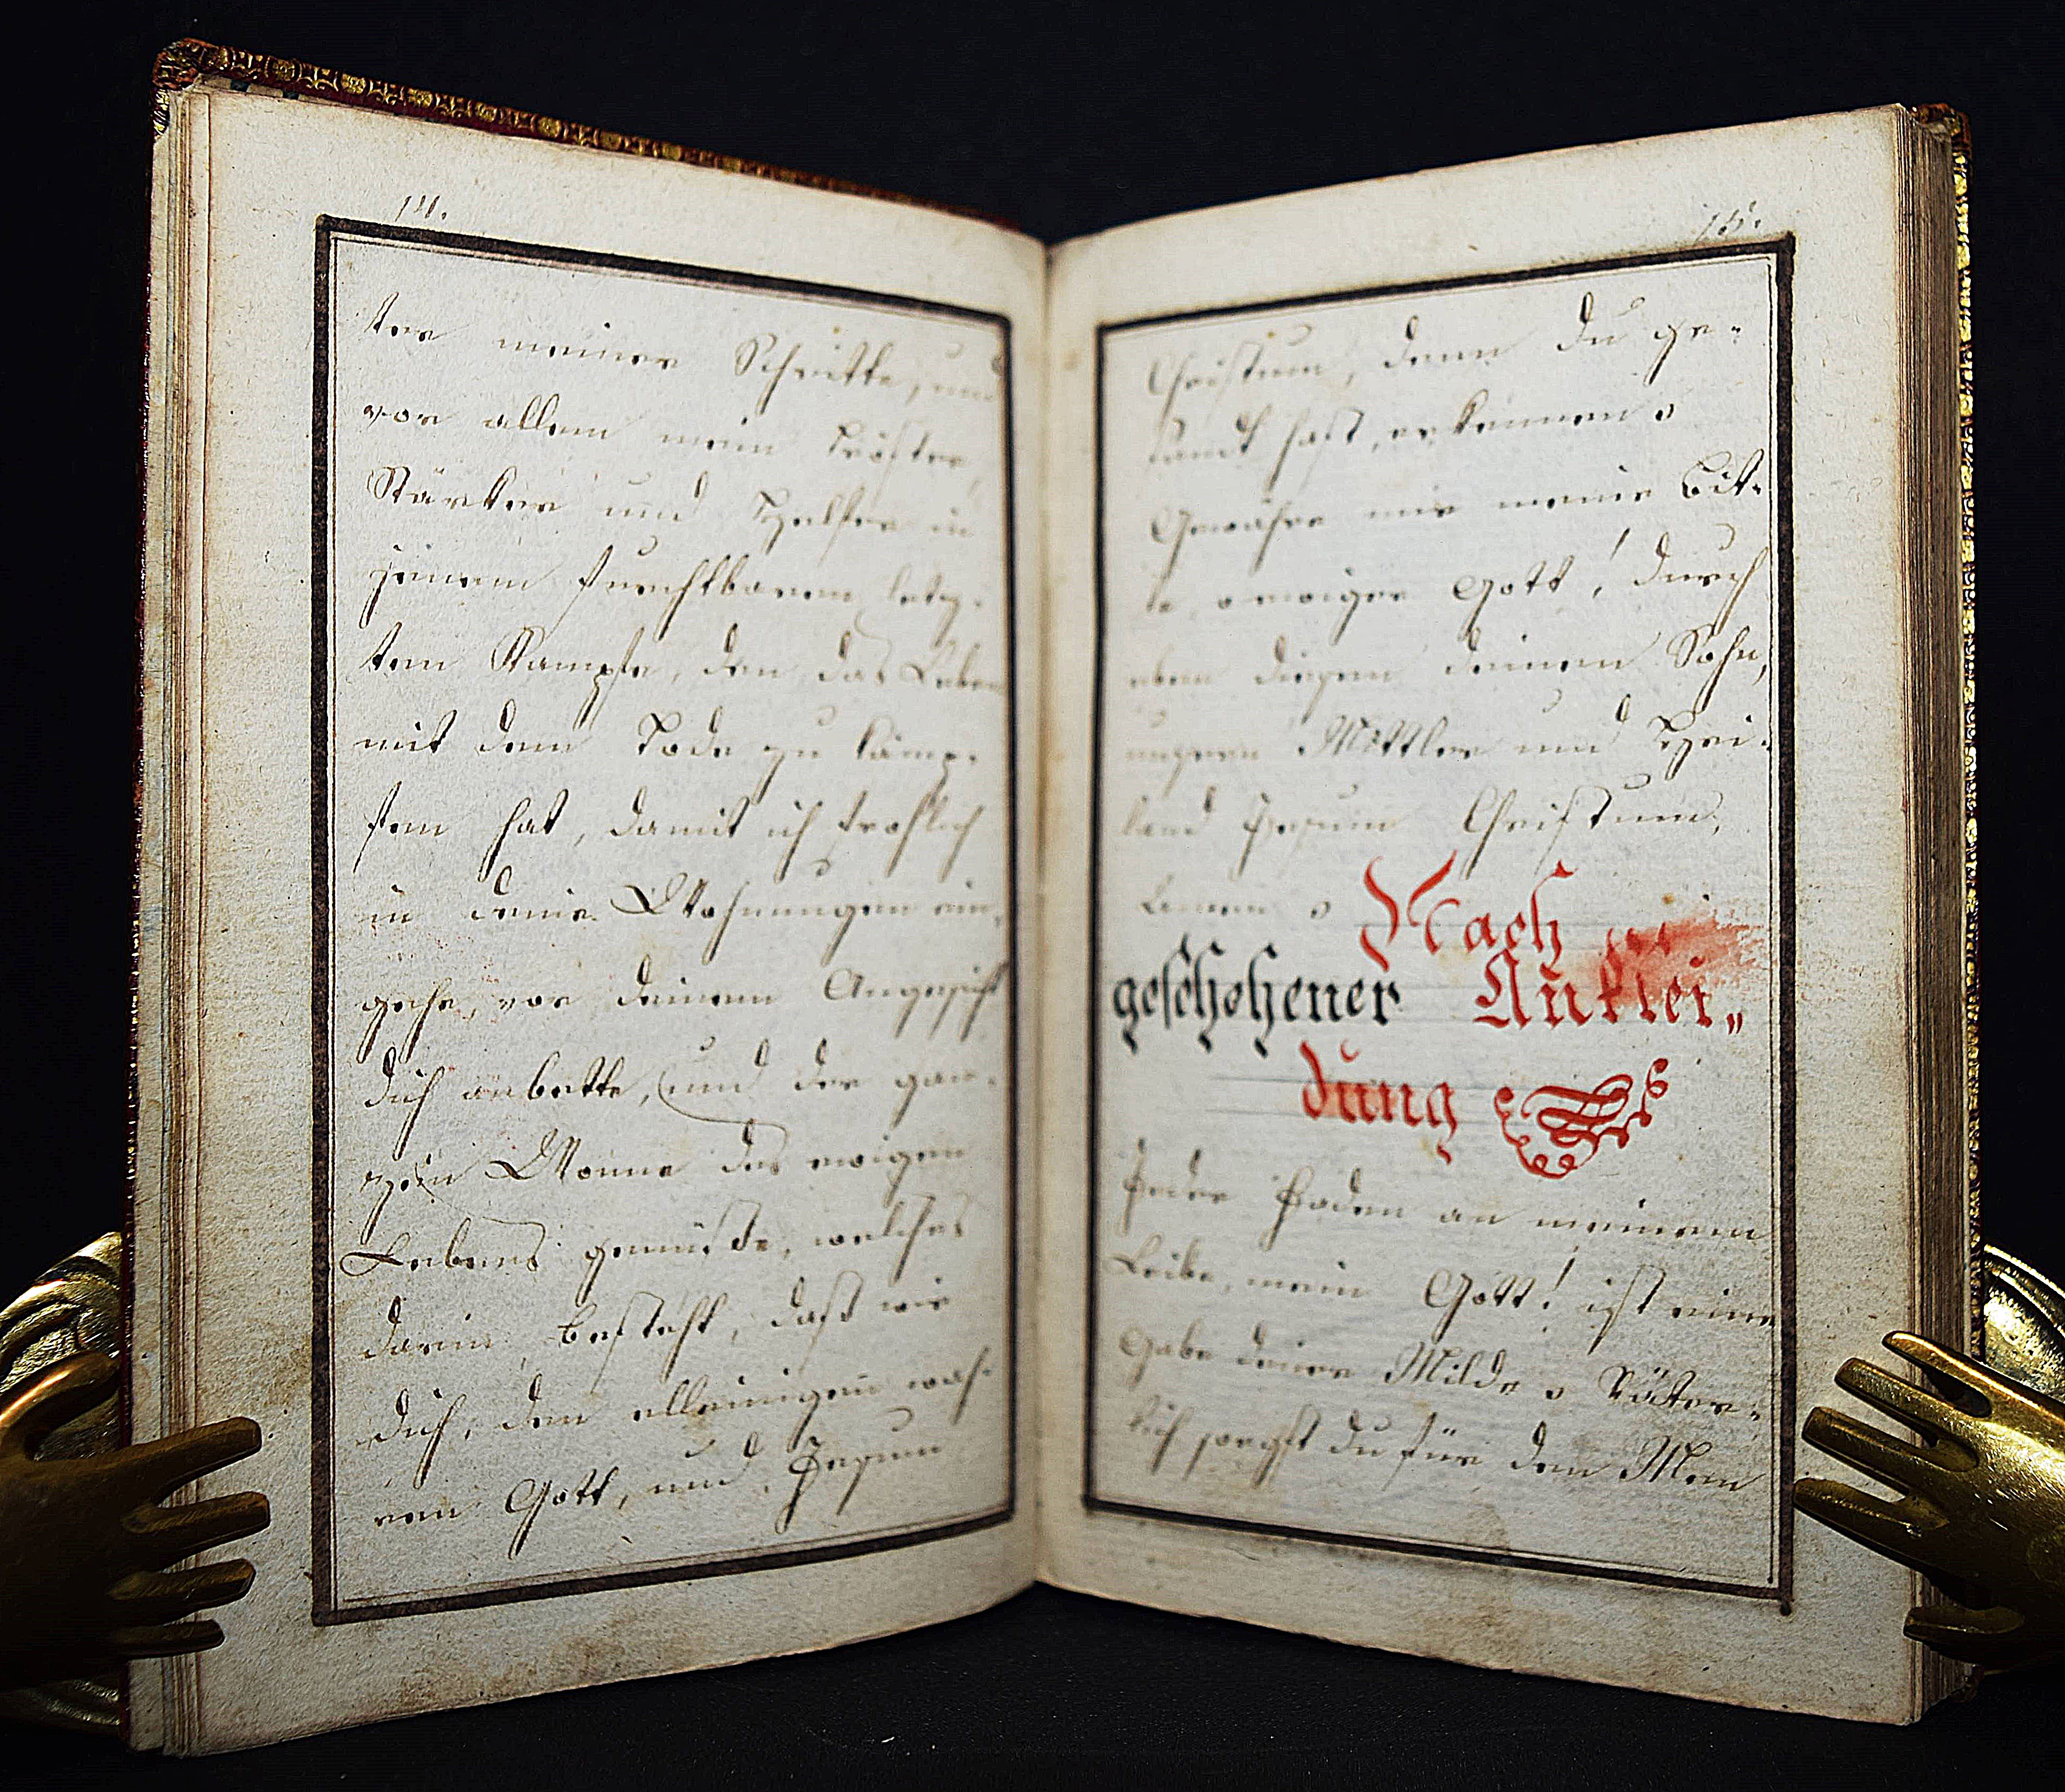 14.
ter meiner Schritte, und
vor allem mein Tröster,
Stärker und Helfer in
jenem furchtbaren letz-
ten Kampfe, den das Leben
mit dem Tode zu kämp-
fen hat, damit ich frohlich
in deine Wohnungen ein-
gehe, vor deinem Angesicht
dich anbette, und der gan-
zen Wonne des ewigen
Lebens genüße, welches
darin besteht, daß wir
dich, den alleinigen wah-
ren Gott, und Jesum
15.
Christum, denn du ge-
sandt hast, erkennen.
Gewähre mir meine Bit-
te, o ewiger Gott! durch
eben diesen deinen Sohn,
unsern Mittler und Hei-
land Jesum Christum,
Amen. Nach
geschehener Anklei„
dung
Jeder Faden an meinem
Leibe, mein Gott! ist eine
Gabe deiner Milde. Väter-
lich sorgst du für den Men